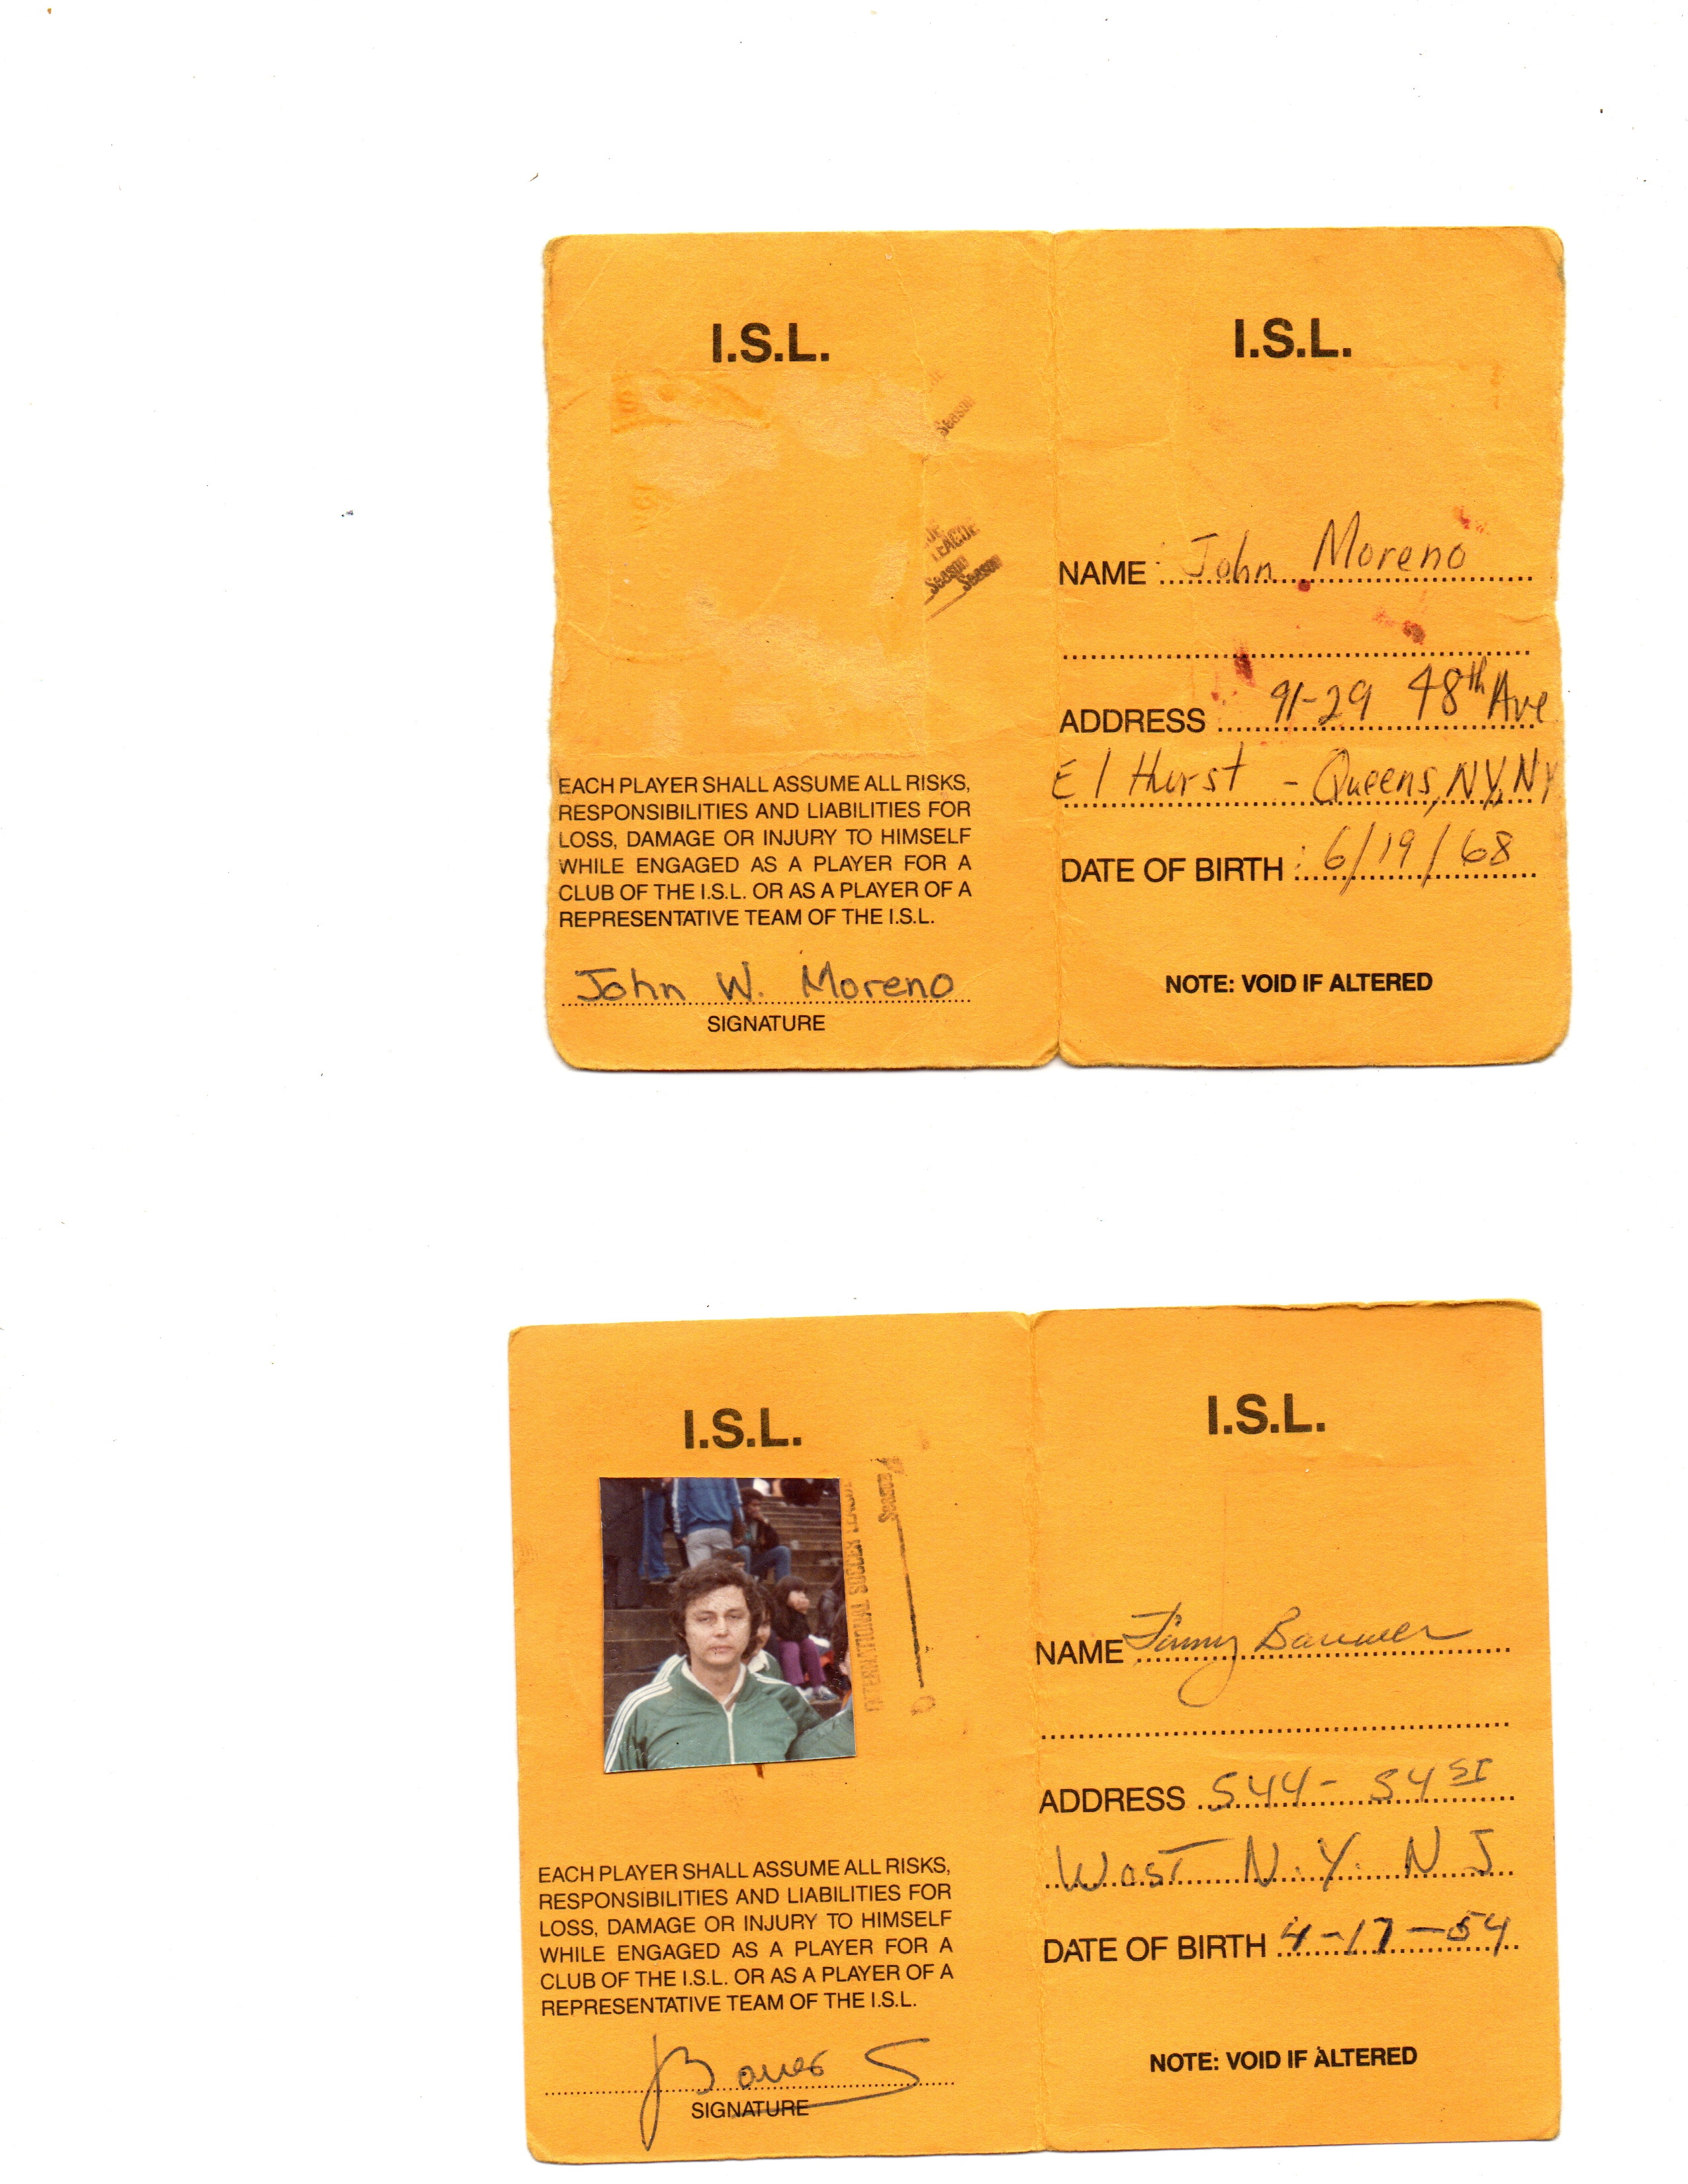 I.S.L.
Season
LEAGUE
Season
Season
EACH PLAYER SHALL ASSUME ALL RISKS,
RESPONSIBILITIES AND LIABILITIES FOR
LOSS, DAMAGE OR INJURY TO HIMSELF
WHILE ENGAGED AS A PLAYER FOR A
CLUB OF THE I.S.L. OR AS A PLAYER OF A
REPRESENTATIVE TEAM OF THE I.S.L.
John W. Moreno
SIGNATURE
I.S.L.
NAME John Moreno
ADDRESS 91-29 48th Ave
El Hurst - Queens, NY, NY
DATE OF BIRTH : 6/19/68
NOTE: VOID IF ALTERED
I.S.L.
INTERNATIONAL SOCCER LEAGUE
Season
EACH PLAYER SHALL ASSUME ALL RISKS,
RESPONSIBILITIES AND LIABILITIES FOR
LOSS, DAMAGE OR INJURY TO HIMSELF
WHILE ENGAGED AS A PLAYER FOR A
CLUB OF THE I.S.L. OR AS A PLAYER OF A
REPRESENTATIVE TEAM OF THE I.S.L.
SIGNATURE
I.S.L.
NAME
ADDRESS 544- 54 ST
West N.Y. N J
DATE OF BIRTH 4-17-54
NOTE: VOID IF ALTERED